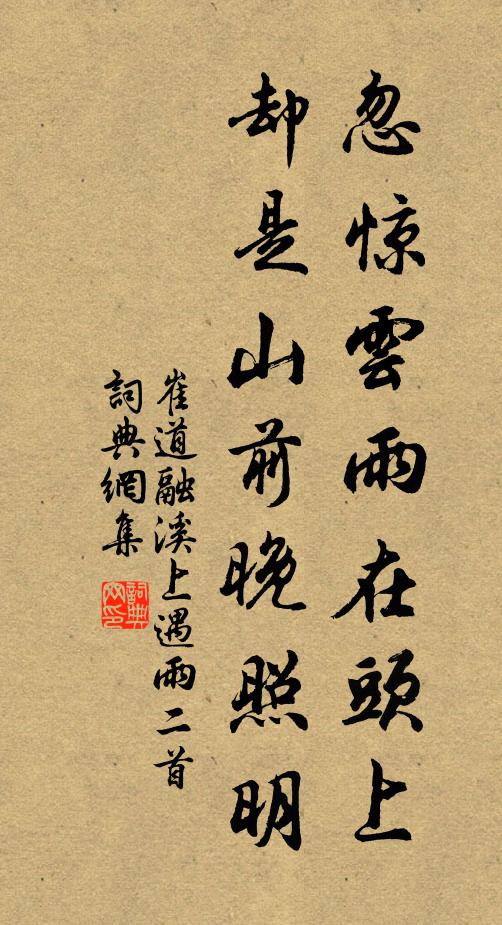 忽惊雲雨在頭上
却是山前晚照明
崔道融溪上遇雨二首
詞典網集
詞典
网印